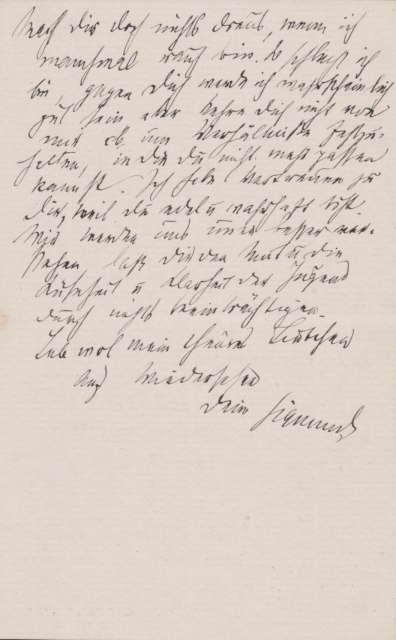 Mach dir doch nichts draus, wenn ich
manchmal rauh bin. So schlecht ich
bin, gegen Dich werde ich wahrscheinlich
gut sein aber kehre dich nicht von
mir ab, um Verhältnisse festzu-
halten, in die du nicht mehr passen
kannst. Ich habe Vertrauen zu
dir, weil du edel u wahrhaft bist.
Wir werden uns immer besser ver-
stehen, laß dir den Mut u die
u Klarheit der Jugend
durch nichts beeinträchtigen.
Leb wol mein theures Liebchen
Auf Wiedersehen
Dein Sigmund